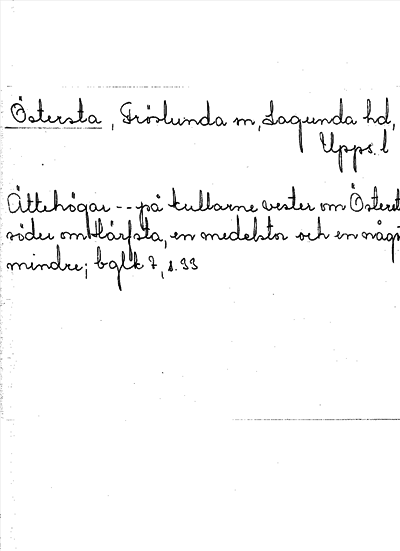 Östersta, Fröslunda m, Lagunda hd,
Upps. l
Ättehögar -- på kullarne vester om Österst
söder om Härfsta, en medelstor och en någo
mindre; bglk 7, s. 33